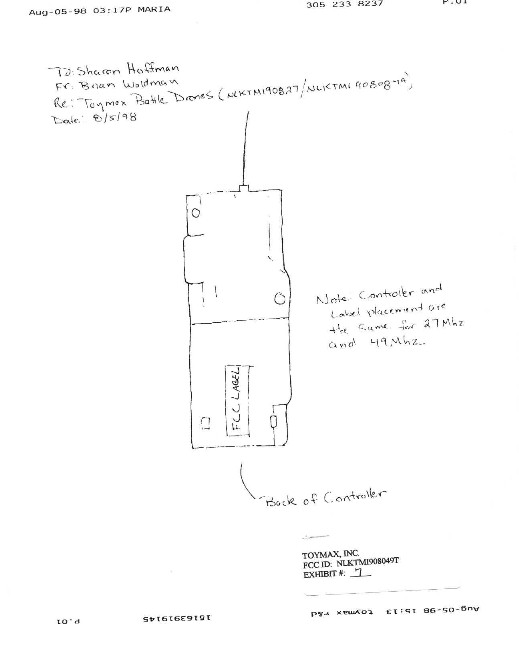 Aug-05-98 03:17P MARIA 305 233 8237 P.01
To: Sharon Hoffman
Fr: Brian Waldman
Re: Toymax Battle Drones (NLKTM190827/
Date: 8/5/98
Note: Controller and
Label placement are
the same for 27Mhz
and 49Mhz.
FCC LABEL
Back of Controller
TOYMAX, INC.
FCC ID: NLKTMI908049T
EXHIBIT #: 7
P.01 15163919145 Aug-05-98 15:13 toymax r&d